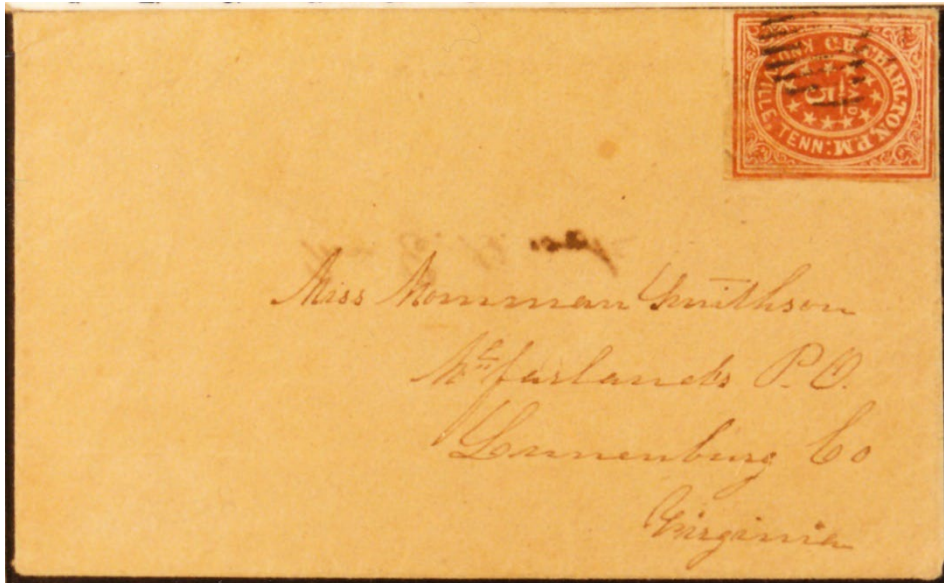 C.H. CHARLTON. P.M.
PAID
5
KNOXVILLE, TENN:
Miss Momman Smithson
McFarlands P.O.
Lunenburg Co
Virginia